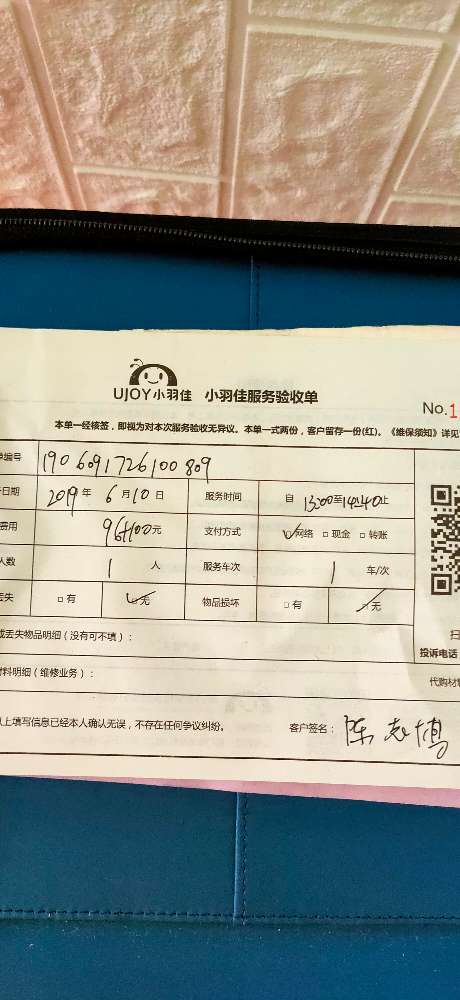 UJOY小羽佳 小羽佳服务验收单
No.1
本单一经核签，即视为对本次服务验收无异议。本单一式两份，客户留存一份(红)。《维保须知》详见
单编号 1906091726100809
日期 2019年6月10日 服务时间 自 13:00至14:40止
费用 元 支付方式 ☑网络 □现金 □转账
人数 1 人 服务车次 1 车/次
丢失 □有 ☑无 物品损坏 □有 ☑无
或丢失物品明细（没有可不填）：
材料明细（维修业务）：
以上填写信息已经本人确认无误，不存在任何争议纠纷。 客户签名：陈志博
扫
投诉电话
代购材料